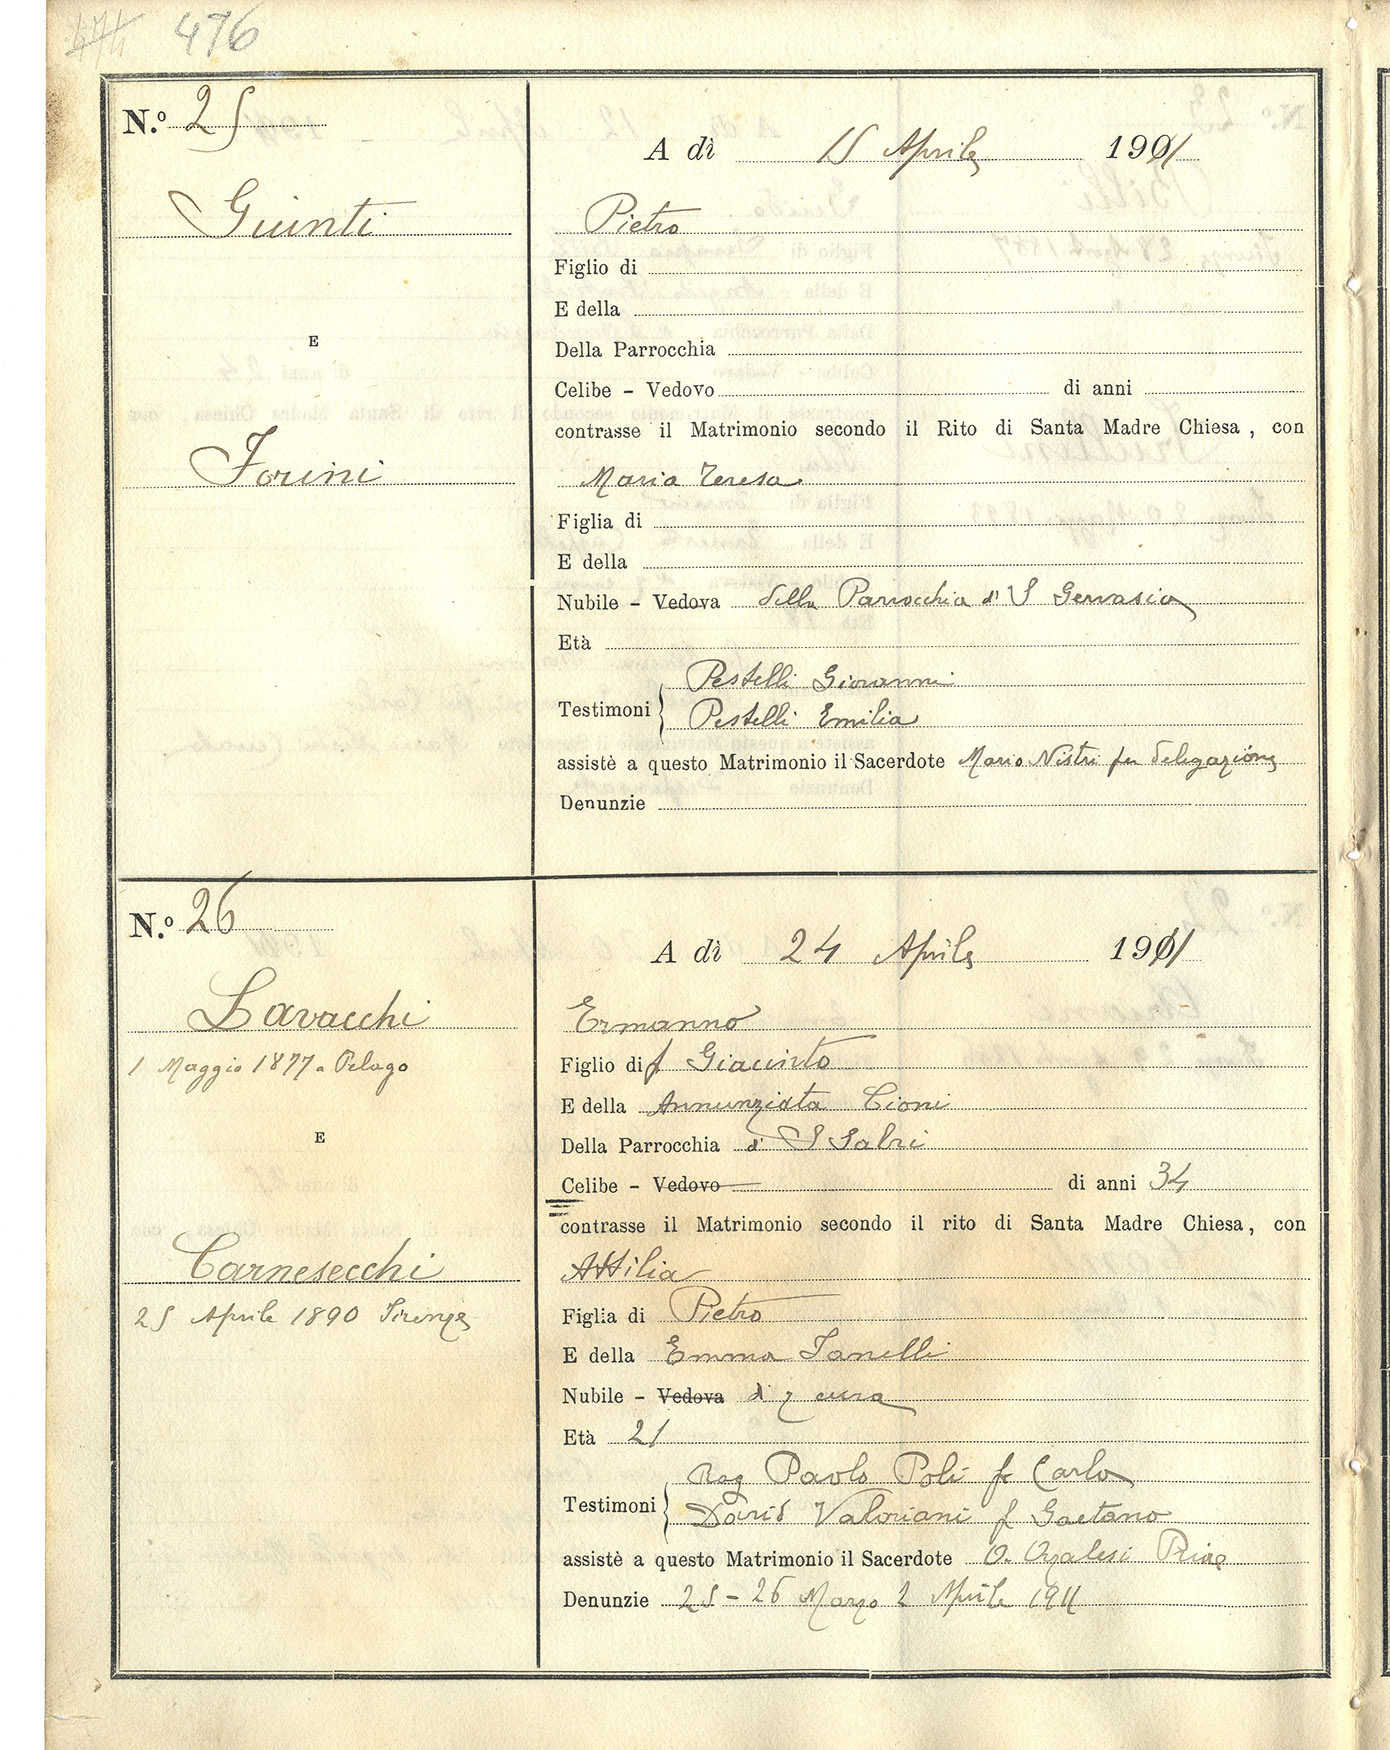 474 476
N.º 25
A dì 15 Aprile 1911
Giunti
Pietro
Figlio di
E della
E
Della Parrocchia
Celibe - Vedovo di anni
contrasse il Matrimonio secondo il Rito di Santa Madre Chiesa, con
Forini
Maria Teresa
Figlia di
E della
Nubile - Vedova della Parrocchia di S Gervasio
Età
Pestelli Giovanni
Testimoni
Pestelli Emilia
assistè a questo Matrimonio il Sacerdote Mario Nistri per delegazione
Denunzie
N.º 26
A dì 24 Aprile 1911
Lavacchi
Ermanno
1 Maggio 1877 a Pelago
Figlio di f Giacinto
E della Annunziata Cioni
E
Della Parrocchia di S Salvi
Celibe - Vedovo di anni 34
contrasse il Matrimonio secondo il rito di Santa Madre Chiesa, con
Carnesecchi
Attilia
25 Aprile 1890 Firenze
Figlia di Pietro
E della Emma Ianelli
Nubile - Vedova di q cura
Età 21
Rag Paolo Poli fu Carlo
Testimoni
David Valoriani f Gaetano
assistè a questo Matrimonio il Sacerdote O. Orzalesi
Denunzie 25 - 26 Marzo 2 Aprile 1911